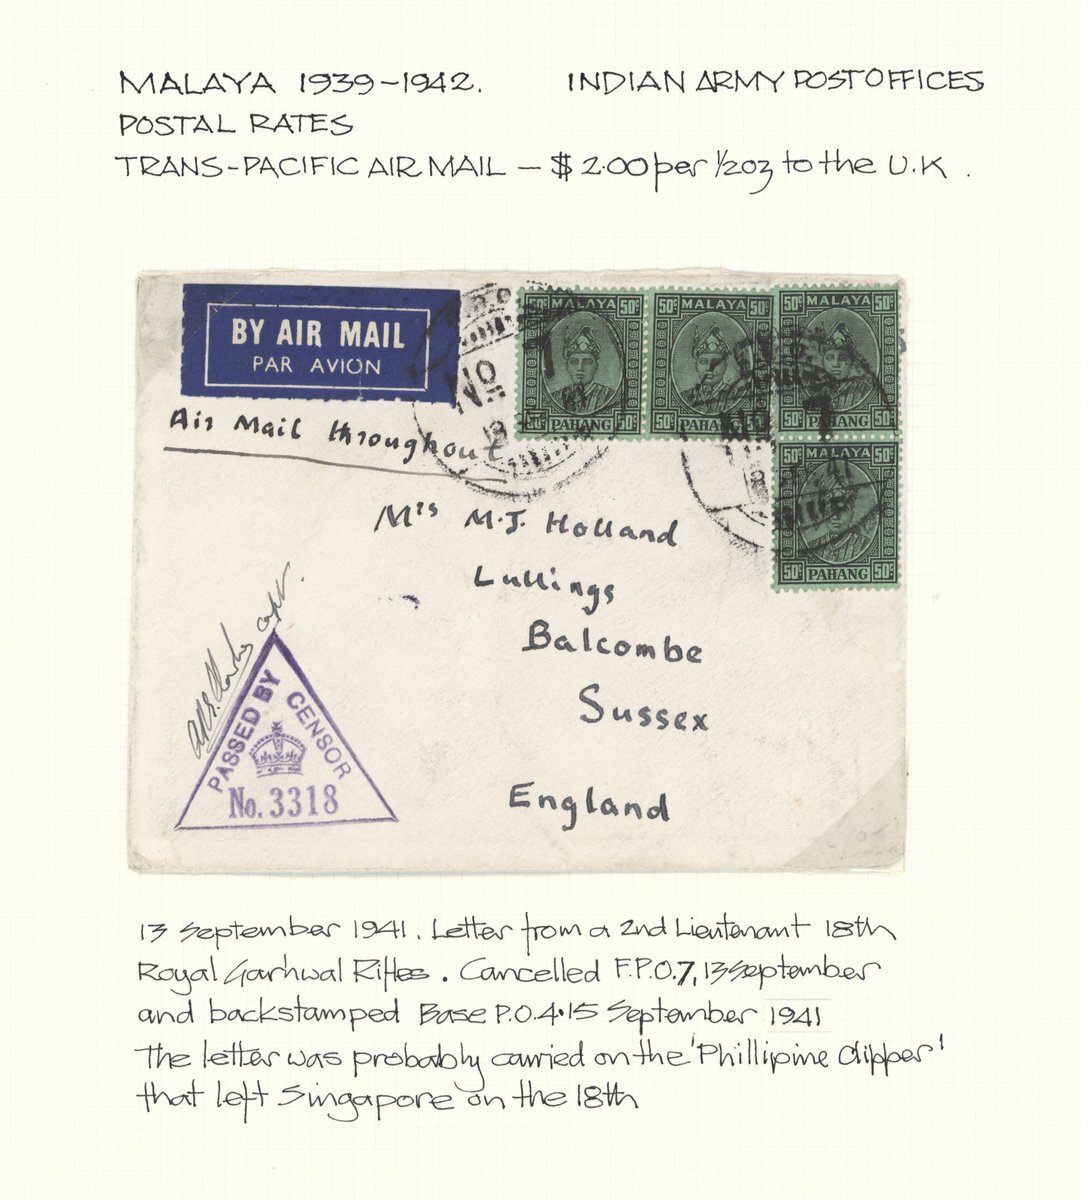 MALAYA 1939-1942. INDIAN ARMY POST OFFICES
POSTAL RATES
TRANS-PACIFIC AIR MAIL — $2.00 per 1/2oz to the U.K.
BY AIR MAIL
PAR AVION
Air Mail throughout
50c MALAYA 50c
50c PAHANG 50c
50c MALAYA 50c
50c PAHANG 50c
50c MALAYA 50c
50c PAHANG 50c
50c MALAYA 50c
50c PAHANG 50c
No 7
No 7
Mrs M.J. Holland
Lullings
Balcombe
Sussex
England
capt.
PASSED BY CENSOR
No. 3318
13 September 1941. Letter from a 2nd Lieutenant 18th
Royal Garhwal Rifles. Cancelled F.P.O.7, 13 September
and backstamped Base P.O.4·15 September 1941
The letter was probably carried on the 'Phillipine Clipper'
that left Singapore on the 18th